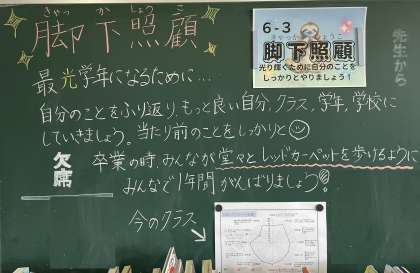 きゃっ か しょう こ
脚下照顧
最光学年になるために…
自分のことをふり返り、もっと良い自分、クラス、学年、学校に
していきましょう。当たり前のことをしっかりと
卒業の時、みんなが堂々とレッドカーペットを歩けるように
みんなで1年間がんばりましょう!
今のクラス
欠席
6-3
脚下照顧
光り輝くために自分のことを
しっかりとやりましょう!
先生から